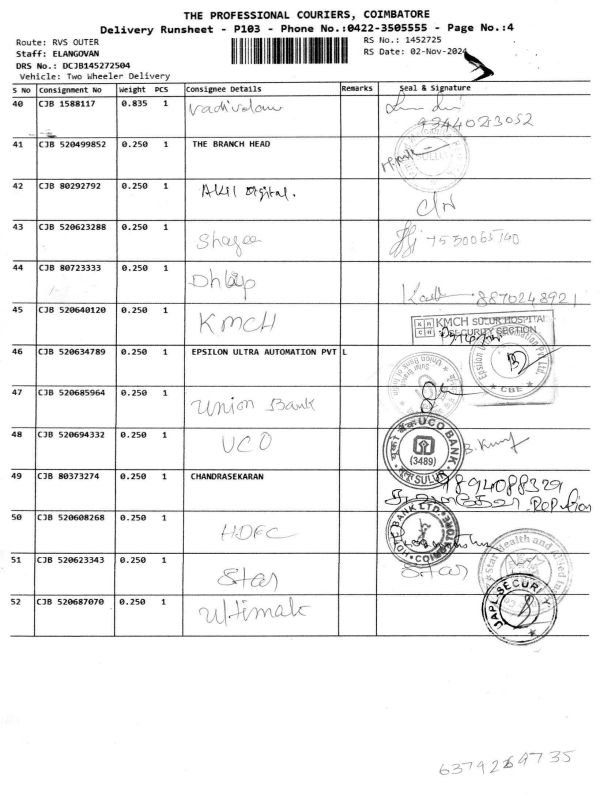 THE PROFESSIONAL COURIERS, COIMBATORE
Delivery Runsheet - P103 - Phone No.:0422-3505555 - Page No.:4
Route: RVS OUTER
RS No.: 1452725
Staff: ELANGOVAN
RS Date: 02-Nov-2024
DRS No.: DCJB145272504
Vehicle: Two Wheeler Delivery
S No Consignment No Weight PCS Consignee Details Remarks Seal & Signature
40 CJB 1588117 0.835 1 Vadivelan
9344023052
41 CJB 520499852 0.250 1 THE BRANCH HEAD
42 CJB 80292792 0.250 1 Akil Digital.
43 CJB 520623288 0.250 1 Shagee 7530065740
44 CJB 80723333 0.250 1 Dhilip
8870248921
45 CJB 520640120 0.250 1 KMCH
KMCH SULUR HOSPITAL
SECURITY SECTION
46 CJB 520634789 0.250 1 EPSILON ULTRA AUTOMATION PVT L
CBE
47 CJB 520685964 0.250 1 Union Bank
48 CJB 520694332 0.250 1 UCO
UCO BANK
(3489)
SULUR
49 CJB 80373274 0.250 1 CHANDRASEKARAN 9894088329
50 CJB 520608268 0.250 1 HDFC
BANK LTD.
51 CJB 520623343 0.250 1 Star Star
Star Health and Allied
52 CJB 520687070 0.250 1 Ultimate
JAPL-SECURITY